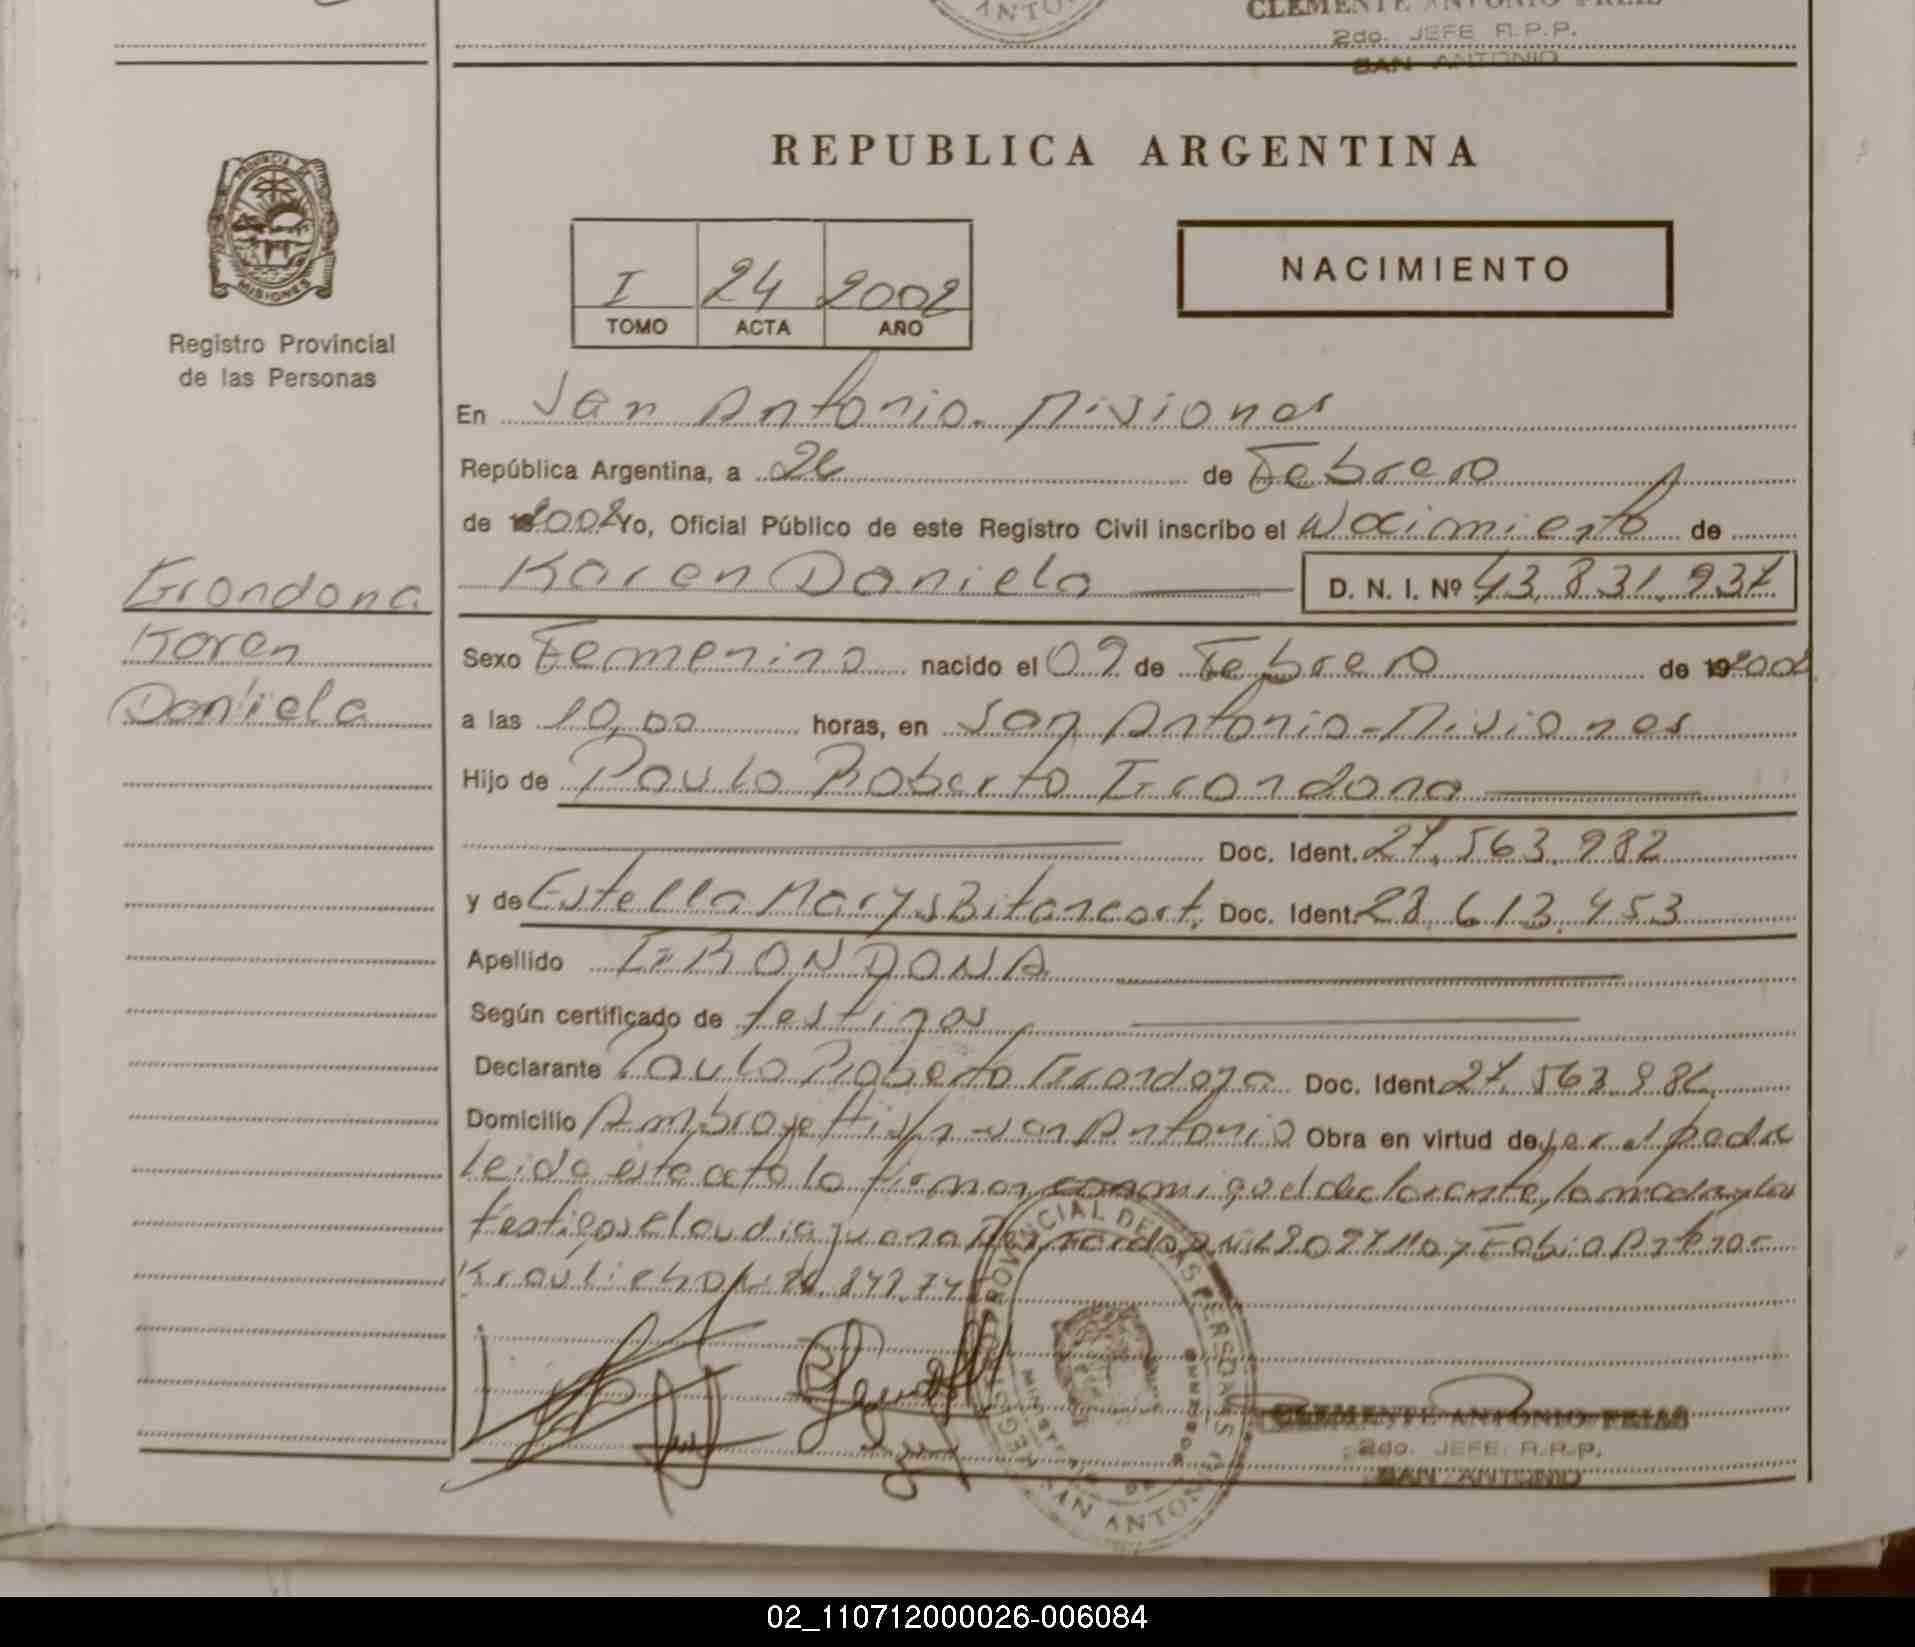 ANTO
CLEMENTE ANTONIO FRIAS
2do. JEFE R.P.P.
SAN ANTONIO
PROVINCIA DE
MISIONES
Registro Provincial
de las Personas
REPUBLICA ARGENTINA
I 24 2002
TOMO ACTA AÑO
NACIMIENTO
En San Antonio - Misiones
República Argentina, a 26 de Febrero
de 2002 Yo, Oficial Público de este Registro Civil inscribo el Nacimiento de
Karen Daniela D. N. I. Nº 43.831.937
Grondona
Karen
Daniela
Sexo Femenino nacido el 09 de Febrero de 2002
a las 10,00 horas, en San Antonio - Misiones
Hijo de Paulo Roberto Grondona
Doc. Ident. 27.563.982
y de Estella Marys Bitancort, Doc. Ident. 28.613.453
Apellido GRONDONA
Según certificado de testigos
Declarante Paulo Roberto Grondona Doc. Ident. 27.563.982
Domicilio Ambrosetti s/n - San Antonio Obra en virtud de ser el padre
leida este acta la firman conmigo el declarante, la madre y los
testigos Claudia Juana y Fabio
REGISTRO PROVINCIAL DE LAS PERSONAS
SAN ANTONIO
CLEMENTE ANTONIO FRIAS
2do. JEFE R.P.P.
SAN ANTONIO
02_110712000026-006084